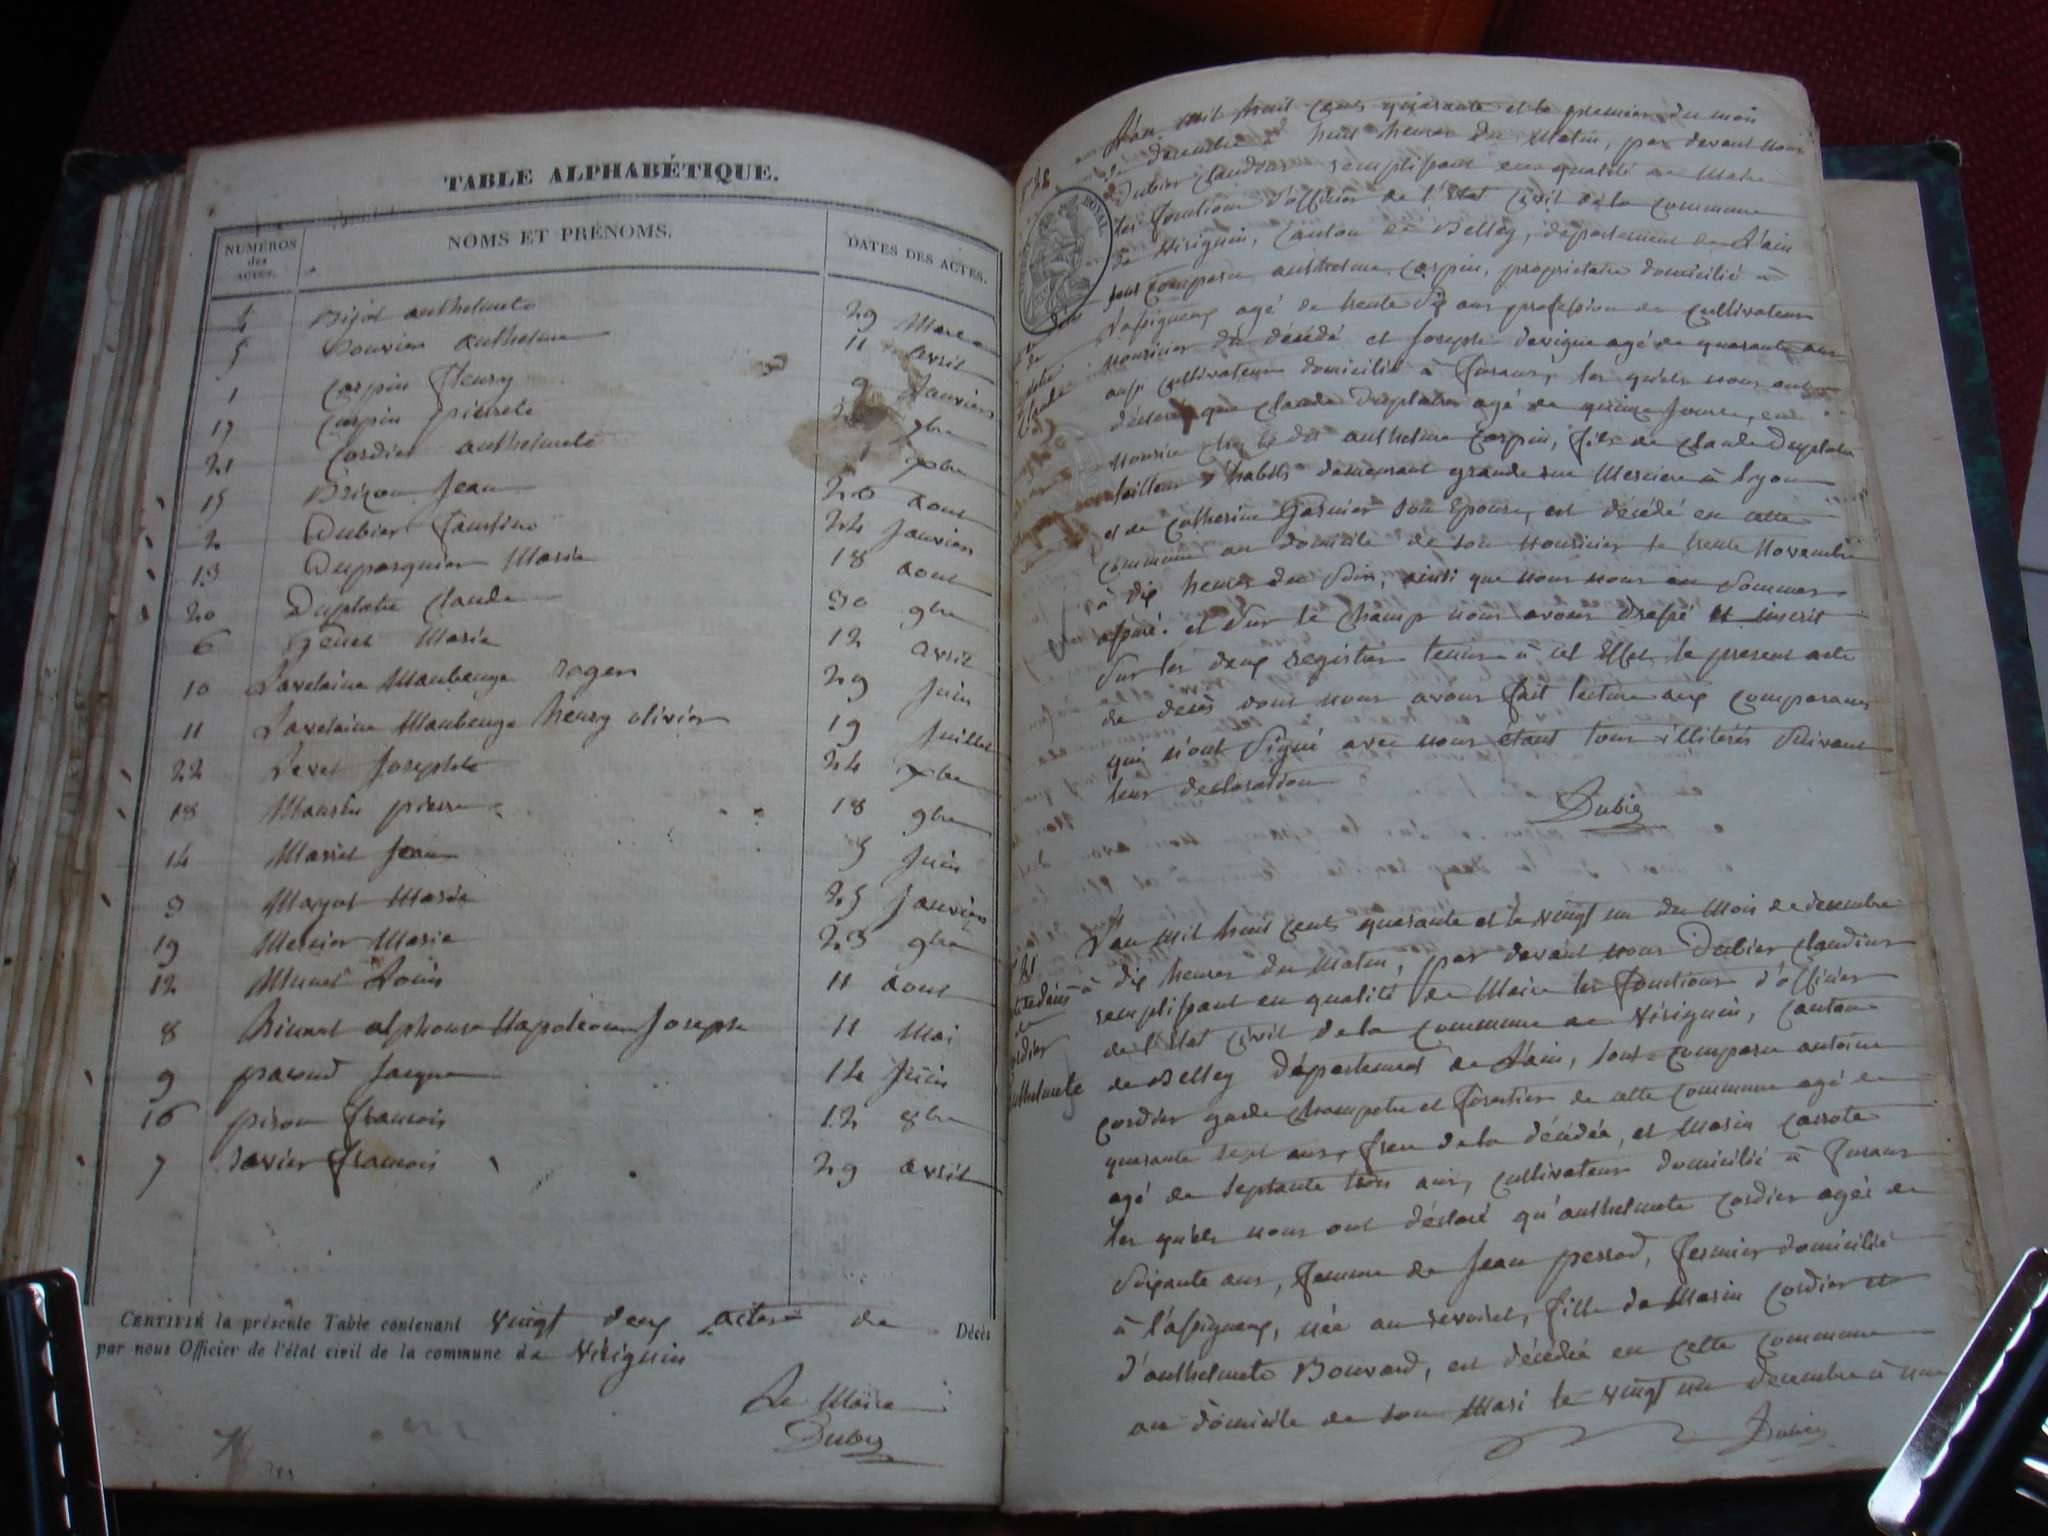 TABLE ALPHABÉTIQUE.
NUMÉROS des ACTES. NOMS ET PRÉNOMS. DATES DES ACTES.
4 anthelmete 29 Mars
5 Bouvier anthelme 11 avril
1 Carpin fleury 9 Janvier
17 Carpin pierrete 9bre
21 Cordier anthelmete xbre
15 Jean 20 aout
2 Dubier faustine 24 Janvier
13 Duparquier Marie 18 aout
20 Duplatre Claude 30 9bre
6 Genet Marie 12 avril
10 Lavelaine Maubeuge roger 29 Juin
11 Lavelaine Maubeuge henry olivier 19 Juillet
22 Levet Josephte 24 xbre
18 pierre 18 9bre
14 Jean 5 Juin
3 Marie 25 Janvier
19 Mercier Marie 23 9bre
12 Munet Louis 11 aout
8 alphonse Napoleon Joseph 11 Mai
9 Jacque 14 Juin
16 pison francois 12 8bre
7 Savier francois 29 avril
CERTIFIÉ la présente Table contenant vingt deux actes de Décès
par nous Officier de l'état civil de la commune de Virignin
Le Maire
Dubier
ROYAL.
L'an mil huit cents quarante et le premier du mois
de decembre à huit heures du Matin, par devant nous
Dubier Claudius remplissant en qualité de Maire
les fonctions d'officier de l'état Civil de la commune
de Virignin, Canton de Belley, departement de L'ain
sont comparu anthelme Carpin, proprietaire domicilié à
Lassignieux agé de trente six ans profession de cultivateur
nouricier du décédé et Joseph devigne agé de quarante ans
aussi cultivateur domicilié à furans, les quels nous ont
déclaré que Claude Duplatre agé de quinze Jours, en
nourice chez le dit anthelme Carpin, fils de Claude Duplatre
tailleur d'habits demeurant grande rue Merciere à Lyon
et de Catherine Garnier son Epouse, est décédé en cette
commune au domicile de son nouricier le trente Novembre
à dix heures du soir, ainsi que nous nous en sommes
assuré. et sur le champ nous avons dressé et inscrit
sur les deux registres tenus à cet Effet, le present acte
de décès dont nous avons fait lecture aux comparans
qui n'ont signé avec nous étant tous illiterés suivant
leur declaration
Dubier
L'an mil huit cents quarante et le vingt un du Mois de decembre
à dix heures du matin, par devant nous Dubier Claudius
remplissant en qualité de Maire les fonctions d'officier
de l'état Civil de la commune de Virignin, canton
de Belley département de L'ain, sont comparu antoine
cordier garde champetre et forestier de cette commune agé de
quarante sept ans, frere de la décédée, et Marin Carrote
agé de septante trois ans, cultivateur domicilié à furans
les quels nous ont déclaré qu'anthelmete Cordier agée de
soixante ans, femme de Jean perrod, fermier domicilié
à l'assignieux, née au revoiret, fille de Marin Cordier et
d'anthelmete Bouvard, est décédée en cette commune
au domicile de son Mari le vingt un decembre à une
Dubier
cordier
anthelmete